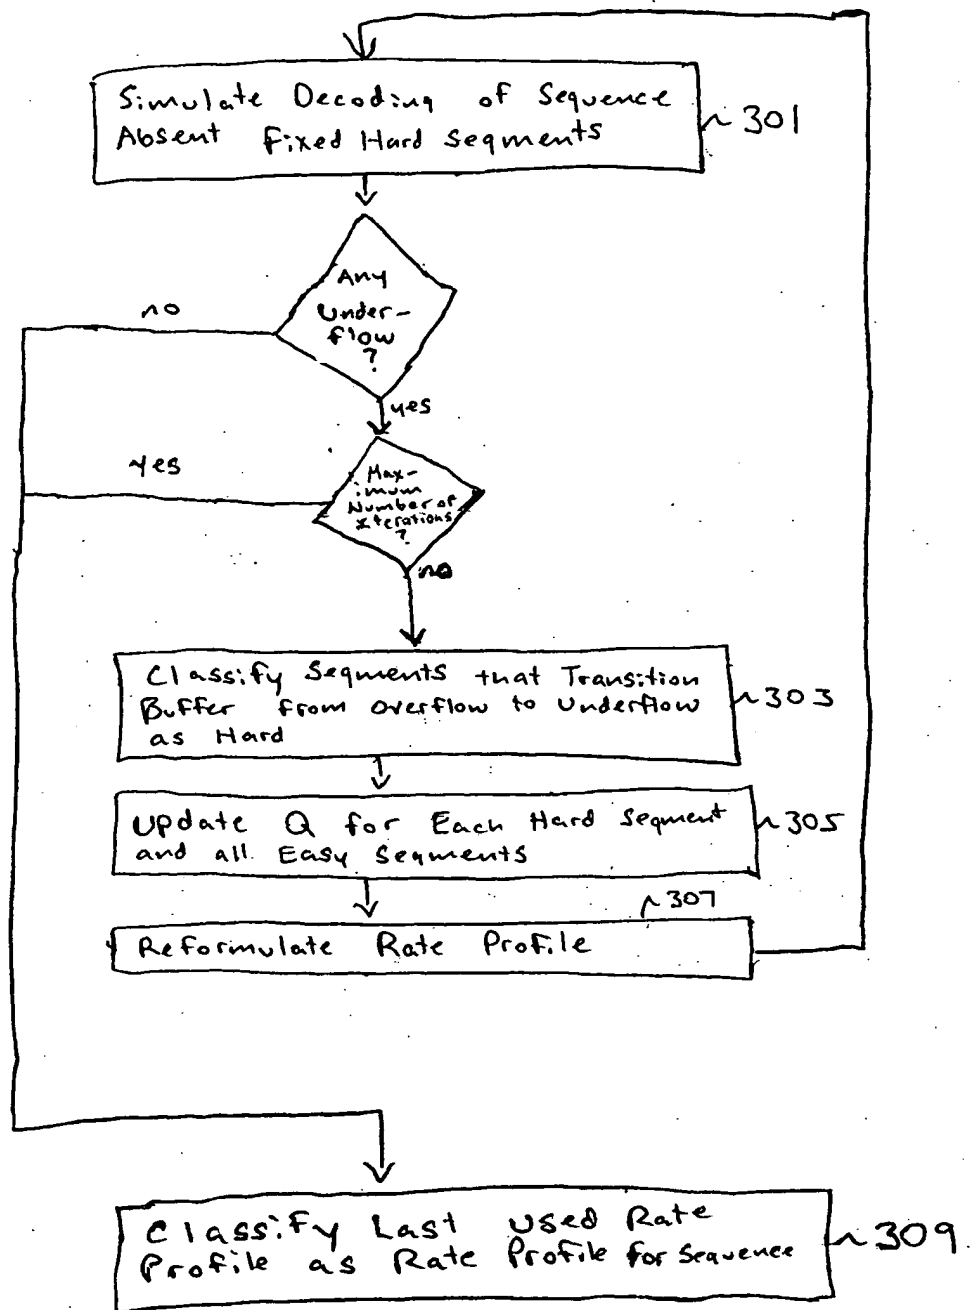 Simulate Decoding of Sequence
Absent Fixed Hard Segments
~ 301
Any
Under-
flow
?
no
yes
Max-
imum
Number of
Iterations
?
yes
no
Classify Segments that Transition
Buffer from Overflow to Underflow
as Hard
~ 303
Update Q for Each Hard Segment
and all Easy Segments
~ 305
~ 307
Reformulate Rate Profile
Classify Last Used Rate
Profile as Rate Profile for Sequence
~ 309